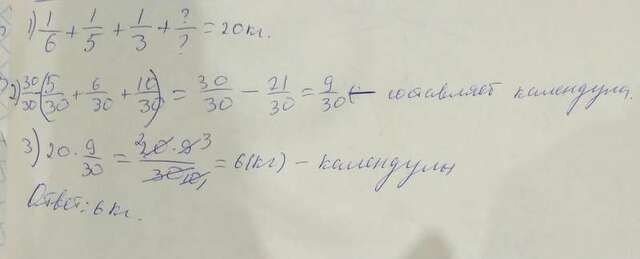 1) 1/6 + 1/5 + 1/3 + ?/? = 20кг.
2) 30/30 (5/30 + 6/30 + 10/30) = 30/30 - 21/30 = 9/30 ← составляет календула.
3) 20 · 9/30 = 20 · 9/30 = 6(кг) – календулы
Ответ: 6 кг.